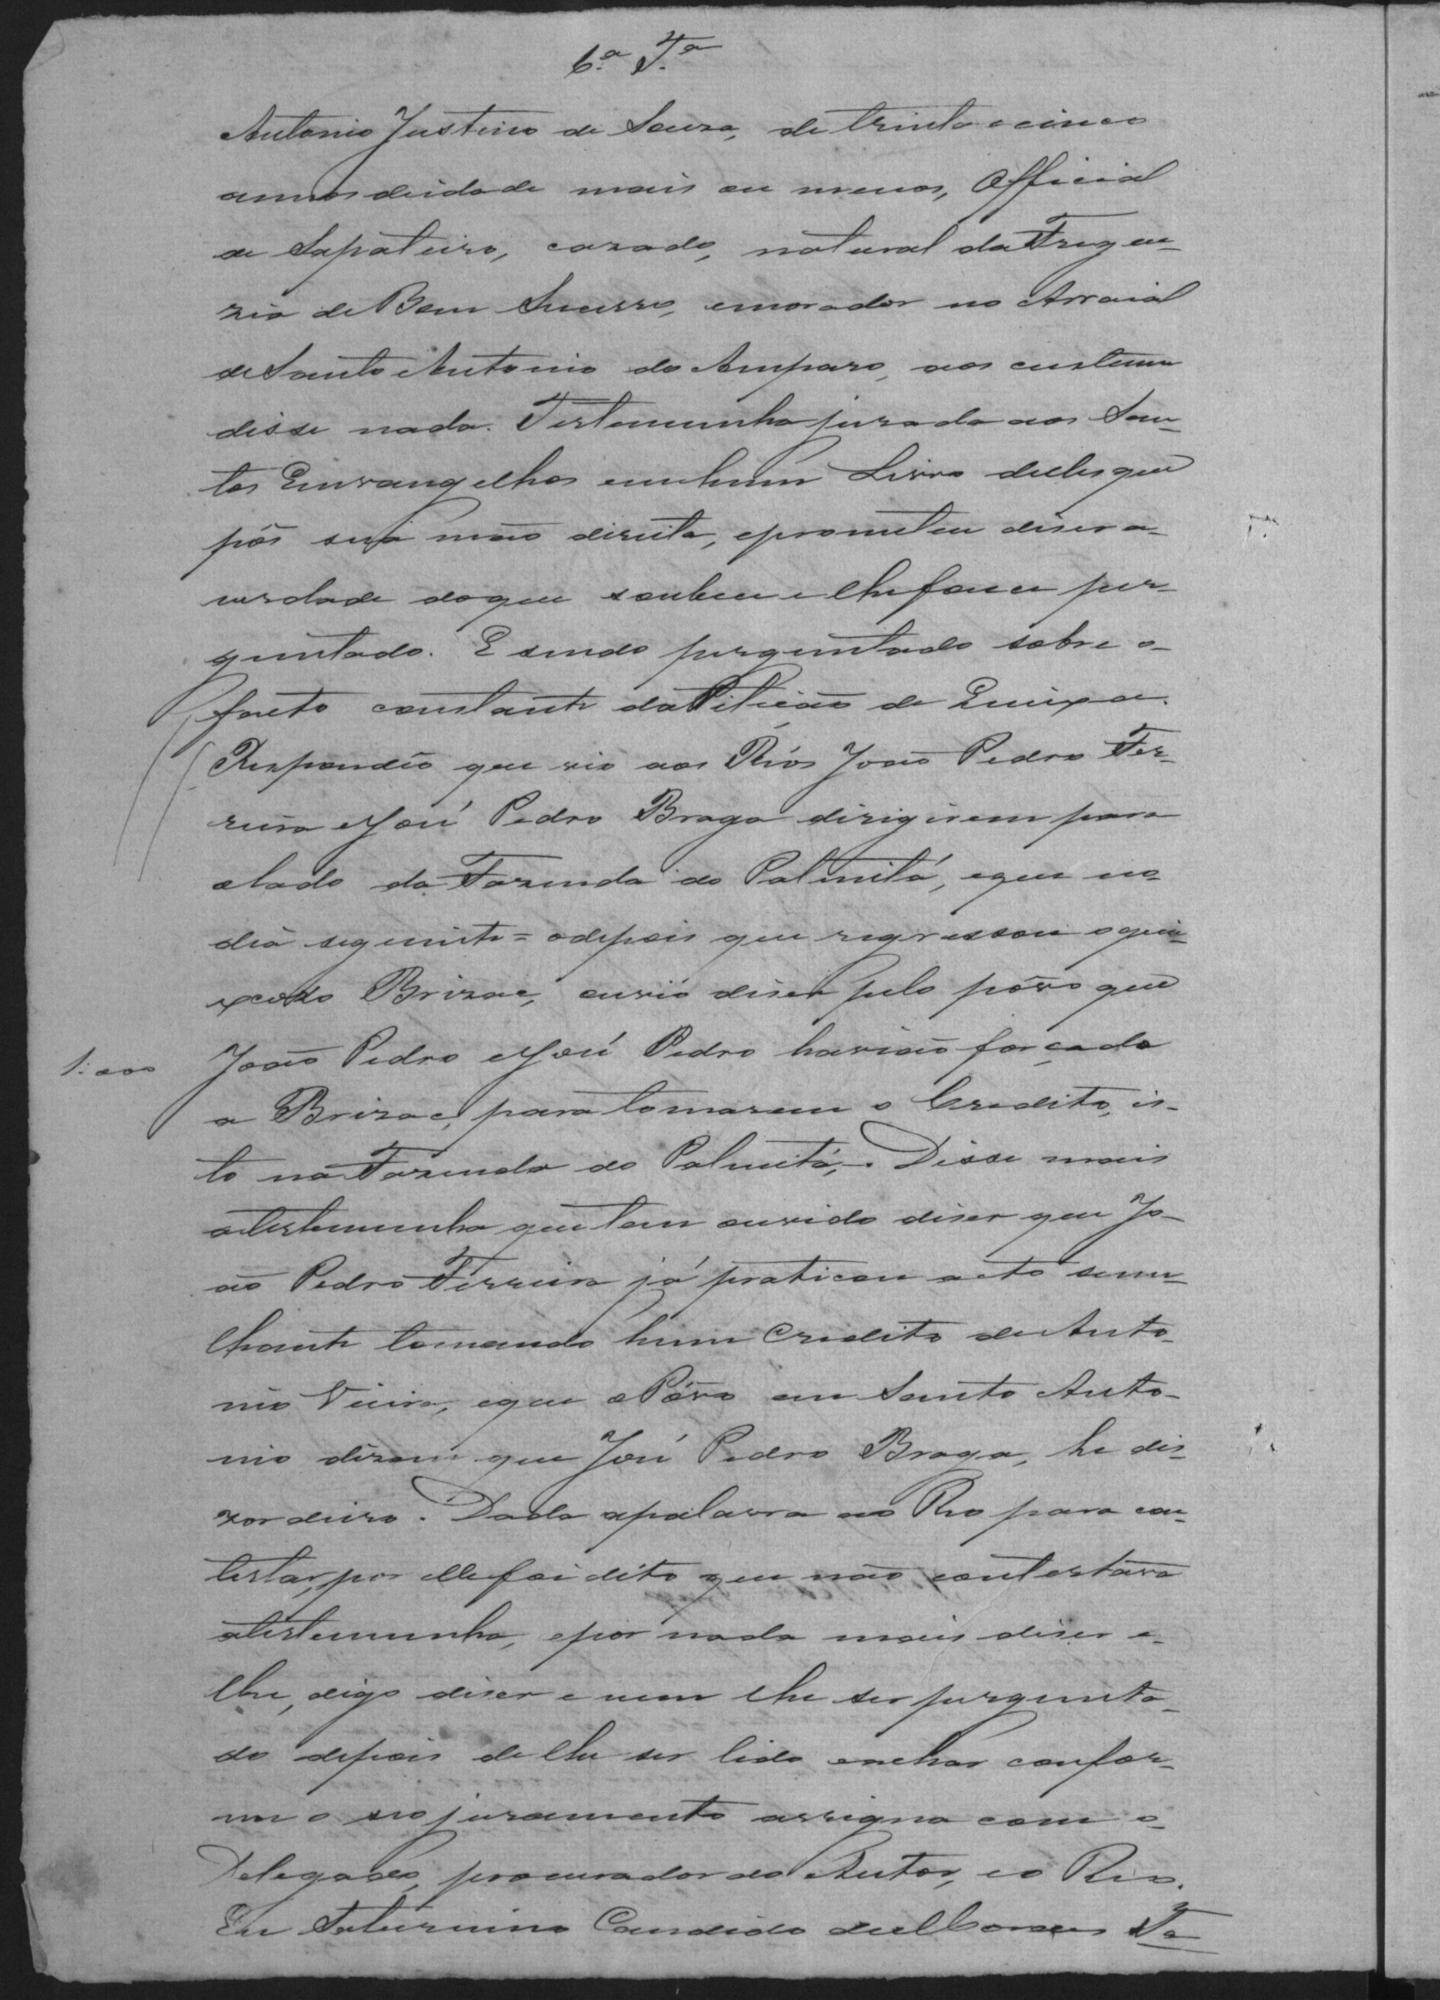 6.ª T.ª
Antonio Justino de Souza, de trinta e cinco
annos deidade mais ou menos, Official
de Sapateiro, cazado, natural da Fregue-
zia de Bom Sucesso, emorador no Arraial
de Santo Antonio do Amparo, aos custumes
disse nada. Testemunha jurada aos San-
tos Euvangelhos em hum Livro delles que
pôs sua mão direita, eprometeu diser a-
verdade doque soubese e lhe fosse per-
guntado. E sendo perguntado sobre o-
facto constante da Pitição de Queixa.
Respondeo que vio aos Réos João Pedro Fer-
reira e José Pedro Braga dirigirem para
olado da Fazenda do Palmitá, eque no
dia seguinte = odepois que regressou oquei-
xozo Brizac, ouvio diser pelo pôvo que
1:000 João Pedro e José Pedro havião forçado
a Brizac, para tomarem o Credito, is-
to na Fazenda do Palmitá, Disse mais
atestemunha que tem ouvido diser que Jo-
ão Pedro Ferreira já praticou acto seme-
lhante tomando hum Credito de Anto-
nio Vieira, eque o Pôvo em Santo Anto-
nio dizem que José Pedro Braga, he dis-
zordeiro. Dada apalavra ao Reo para con-
testar, por elle foi dito que não contestava
atestemunha, epor nada mais diser e-
lhe, digo diser e nem lhe ser pergunta-
do depois de lhe ser lido eachar confor-
me o seo juramento assigna com o-
Delegado, procurador do Autor, e o Reo.
Eu Saturnino Candido de Moraes Ta